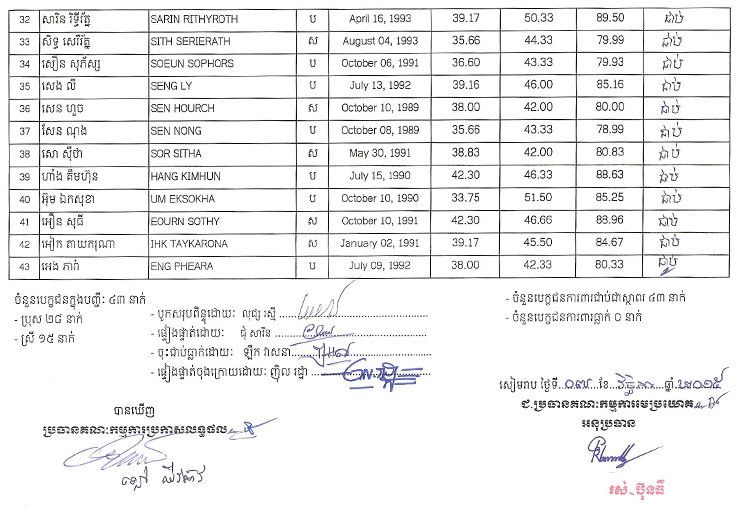 32 សារិន រិទ្ធីរ័ត្ន SARIN RITHYROTH ប April 16, 1993 39.17 50.33 89.50 ជាប់
33 សិទ្ធ សេរីរ័ត្ន SITH SERIERATH ស August 04, 1993 35.66 44.33 79.99 ជាប់
34 សឿន សុភ័ស្ស SOEUN SOPHORS ប October 06, 1991 36.60 43.33 79.93 ជាប់
35 សេង លី SENG LY ប July 13, 1992 39.16 46.00 85.16 ជាប់
36 សេន ហួច SEN HOURCH ស October 10, 1989 38.00 42.00 80.00 ជាប់
37 សែន ណុង SEN NONG ប October 08, 1989 35.66 43.33 78.99 ជាប់
38 សោ ស៊ីថា SOR SITHA ស May 30, 1991 38.83 42.00 80.83 ជាប់
39 ហាំង គឹមហ៊ុន HANG KIMHUN ប July 15, 1990 42.30 46.33 88.63 ជាប់
40 អ៊ុម ឯកសុខា UM EKSOKHA ប October 10, 1990 33.75 51.50 85.25 ជាប់
41 អឿន សុធី EOURN SOTHY ស October 10, 1991 42.30 46.66 88.96 ជាប់
42 អៀក តាយករុណា IHK TAYKARONA ស January 02, 1991 39.17 45.50 84.67 ជាប់
43 អេង ភារ៉ា ENG PHEARA ប July 09, 1992 38.00 42.33 80.33 ជាប់
ចំនួនបេក្ខជនក្នុងបញ្ជីៈ ៤៣ នាក់
- ប្រុស ២៨ នាក់
- ស្រី ១៥ នាក់
- បូកសរុបពិន្ទុដោយៈ លុជ្ជ រស្មី
- ផ្ទៀងផ្ទាត់ដោយៈ ជុំ សារិន
- ចុះជាប់ធ្លាក់ដោយៈ ឡឹក វាសនា
- ផ្ទៀងផ្ទាត់ចុងក្រោយដោយៈ ញ៉ិល រដ្ឋា
- ចំនួនបេក្ខជនការពារជាប់ជាស្ថាពរ ៤៣ នាក់
- ចំនួនបេក្ខជនការពារធ្លាក់ ០ នាក់
សៀមរាប ថ្ងៃទី ០៧ ខែ វិច្ឆិកា ឆ្នាំ ២០១៥
ជ.ប្រធានគណៈកម្មការមេប្រយោគ
អនុប្រធាន
រស់ ប៊ុនធី
បានឃើញ
ប្រធានគណៈកម្មការប្រកាសលទ្ធផល